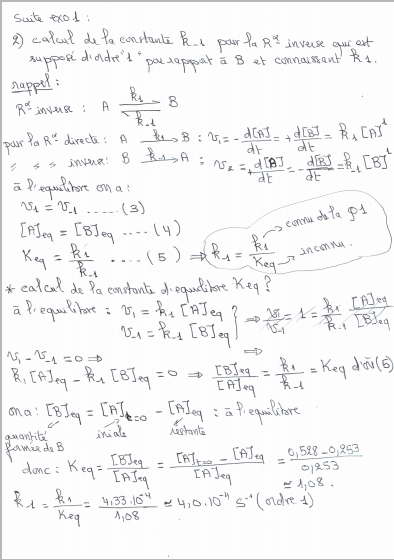 Suite exo 1 :
2) calcul de la constante k-1 pour la R° inverse qui est
supposé d'ordre "1" par rapport à B et connaissant k1.
rappel :
R° inverse : A ⇌ B
k1
k-1
pour la R° directe : A —k1→ B : v1 = - d[A]/dt = + d[B]/dt = k1 [A]^1
" " " inverse : B —k-1→ A : v2 = + d[A]/dt = - d[B]/dt = k-1 [B]^1
à l'equilibre on a :
v1 = v-1 ...... (3)
[A]eq = [B]eq .... (4)
Keq = k1/k-1 .... (5) ⇒ k-1 = k1/Keq
connu de la Φ1
inconnu.
* calcul de la constante d'equilibre Keq ?
à l'equilibre : v1 = k1 [A]eq
v-1 = k-1 [B]eq } ⇒ v1/v-1 = 1 = k1/k-1 [A]eq/[B]eq
v1 - v-1 = 0 ⇒ ⇒
k1 [A]eq - k-1 [B]eq = 0 ⇒ [B]eq/[A]eq = k1/k-1 = Keq d'où (5)
on a : [B]eq = [A]t=0 - [A]eq : à l'equilibre
quantité formée de B
iniale
restante
donc : Keq = [B]eq/[A]eq = [A]t=0 - [A]eq/[A]eq = 0,528 - 0,253/0,253
≃ 1,08.
k-1 = k1/Keq = 4,33.10^-4/1,08 ≃ 4,0.10^-4 s^-1 (ordre 1)